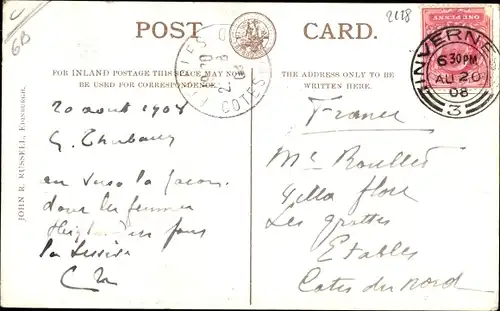 2118
6B
POST CARD.
FOR INLAND POSTAGE THIS SPACE MAY NOW
BE USED FOR CORRESPONDENCE.
THE ADDRESS ONLY TO BE
WRITTEN HERE.
INVERNESS
6 30PM
AU 20
08
3
COTES
JOHN R. RUSSELL, EDINBURGH.
20 août 1908
au verso la façon
dont les femmes
Highlanders font
la lessive
France
Villa flore
Les grottes
Etables
Cotes du Nord